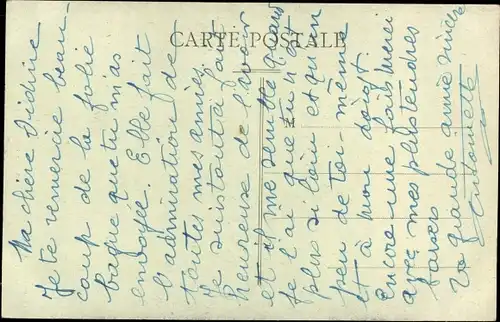 CARTE POSTALE
Ma chère
Je te remercie beau-
coup de la folie
bague que tu m'as
envoyée. Elle fait
l'admiration de
toutes mes amies
Je suis tout à fait
heureuse de l'avoir
et il me semble quand
je l'ai que tu n'est
plus si loin et qu'un
peu de toi-même
est à mon doigt
Encore une fois merci
avec mes plus tendres
baisers
Ta grande amie sincère